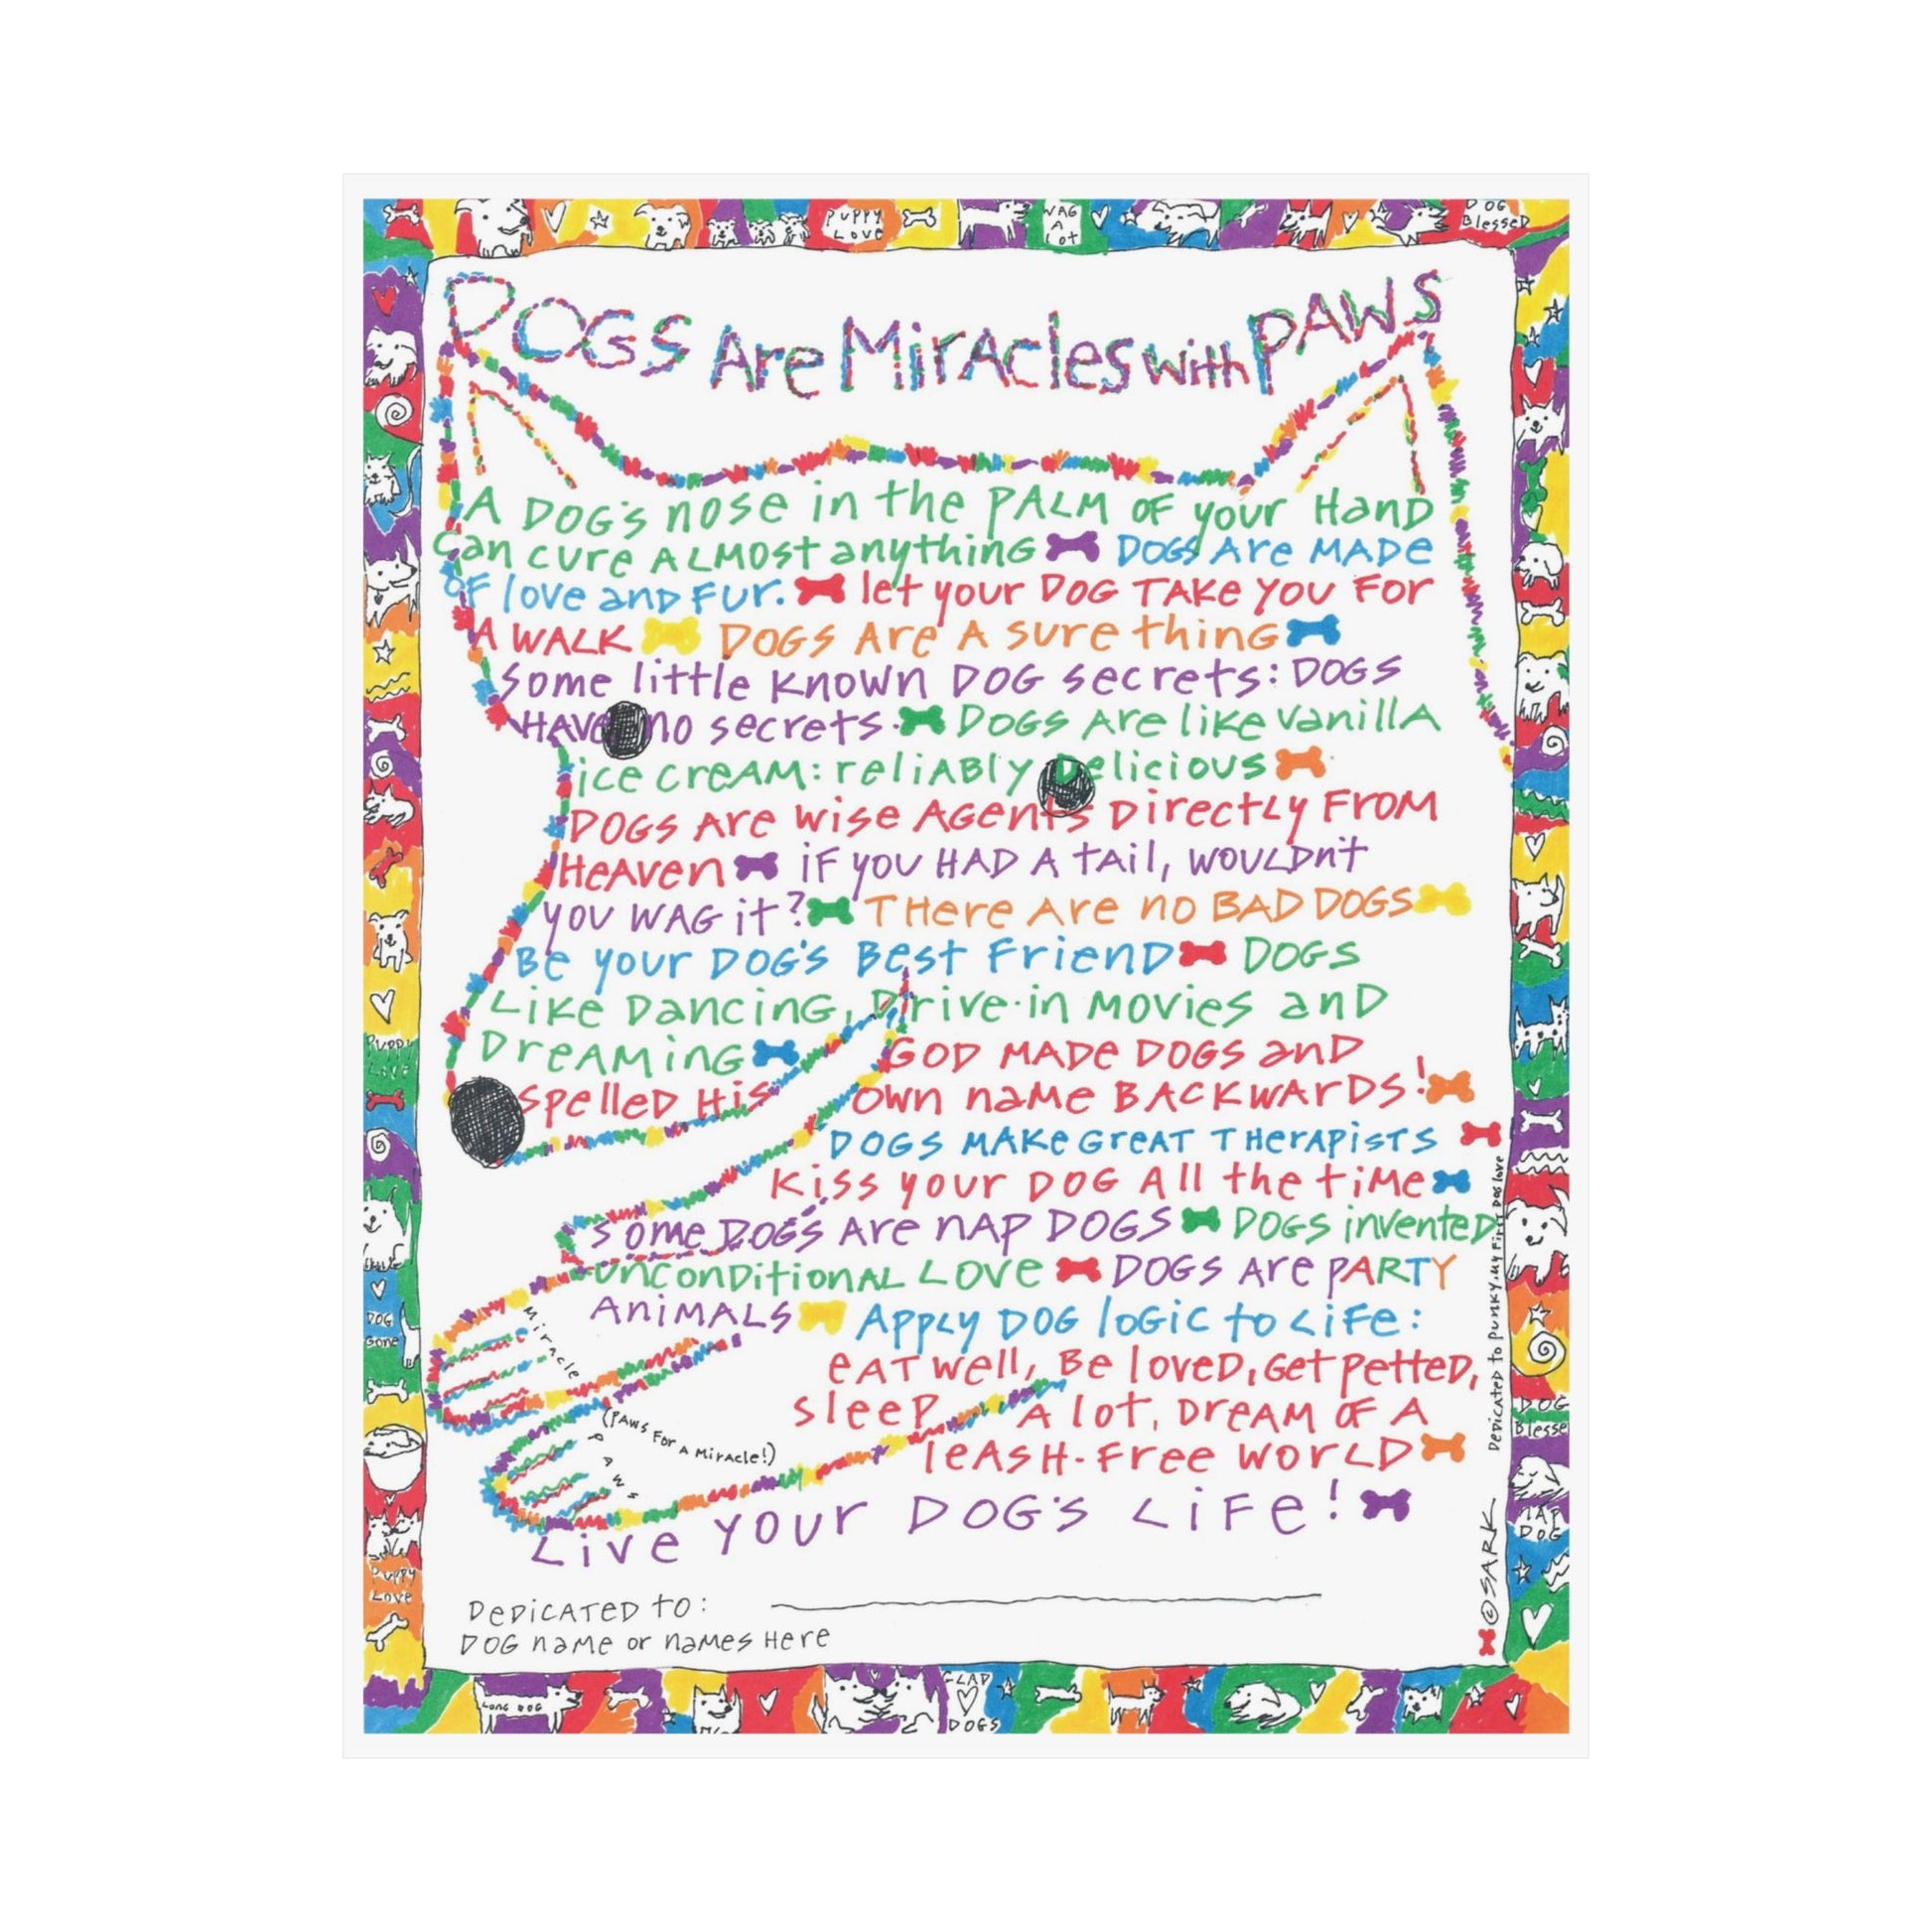 PUPPY LOVE
WAG A Lot
DOG Blessed
DOGS Are MirAcles with PAWS
A DOG's nose in the PALM OF your Hand
can cure ALMOst anything DOGS Are MADe
OF love anD Fur. let your DOG TAKe you For
A WALK DOGS Are A sure thing
Some little KnOWn DOG secrets: DOGS
HAVe no secrets. DOGS Are like vanillA
ice creAM: reliABly Delicious
DOGS Are wise Agents Directly FrOM
HeAven iF you HAD A tAil, wouLDn't
you WAG it? THere Are no BAD DOGS
Be your DOG's Best FrienD DOGS
Like DancinG, Drive-in MOvies anD
DreAMinG GOD MADe DOGS anD
spelleD His own naMe BACKWArDS!
DOGS MAKe GreAT THerAPists
Kiss your DOG All the tiMe
some DOGS Are nAP DOGS DOGS inventeD
unconDitionAL LOve DOGS Are PARTY
AniMALS Apply DOG loGic to LiFe:
eAT well, Be loveD, Get PetteD,
sleeP A lot, DreAM OF A
leAsH-Free worLD
Live your DOG's LiFe!
Miracle
(PAWS For A Miracle!)
PAWS
DeDicATeD to:
DOG naMe or naMes Here
DeDicATeD to Punky, My First DOG love
© SARK
PUPPY
DOG Gone
Puppy Love
DOG Blesse
NAP DOG
LonG DOG
GLAD DOGS